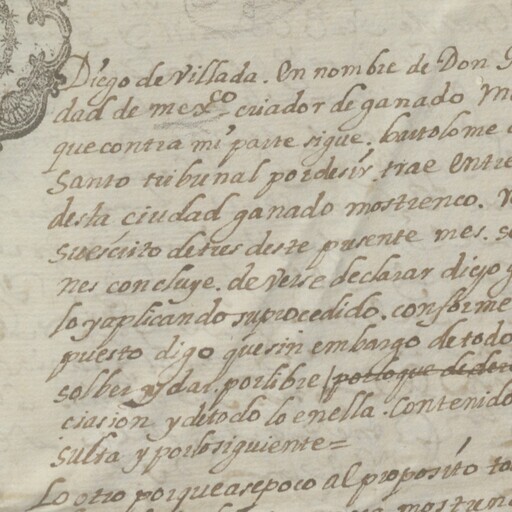 Diego de Villada. en nombre de Don
dad de mexco criador de ganado
que contra mi parte sigue. bartolome
santo tribunal por desir trae entre
desta ciudad ganado mostrenco.
su escrito de tres deste presente mes.
nes concluye. deverse declarar diego
lo y aplicando su procedido. conforme
puesto digo que sin embargo de todo
solber y dar por libre por lo que
ciasion y de todo lo en ella. contenido
sulta y por lo siguiente =
Lo otro porque asepoco al proposito